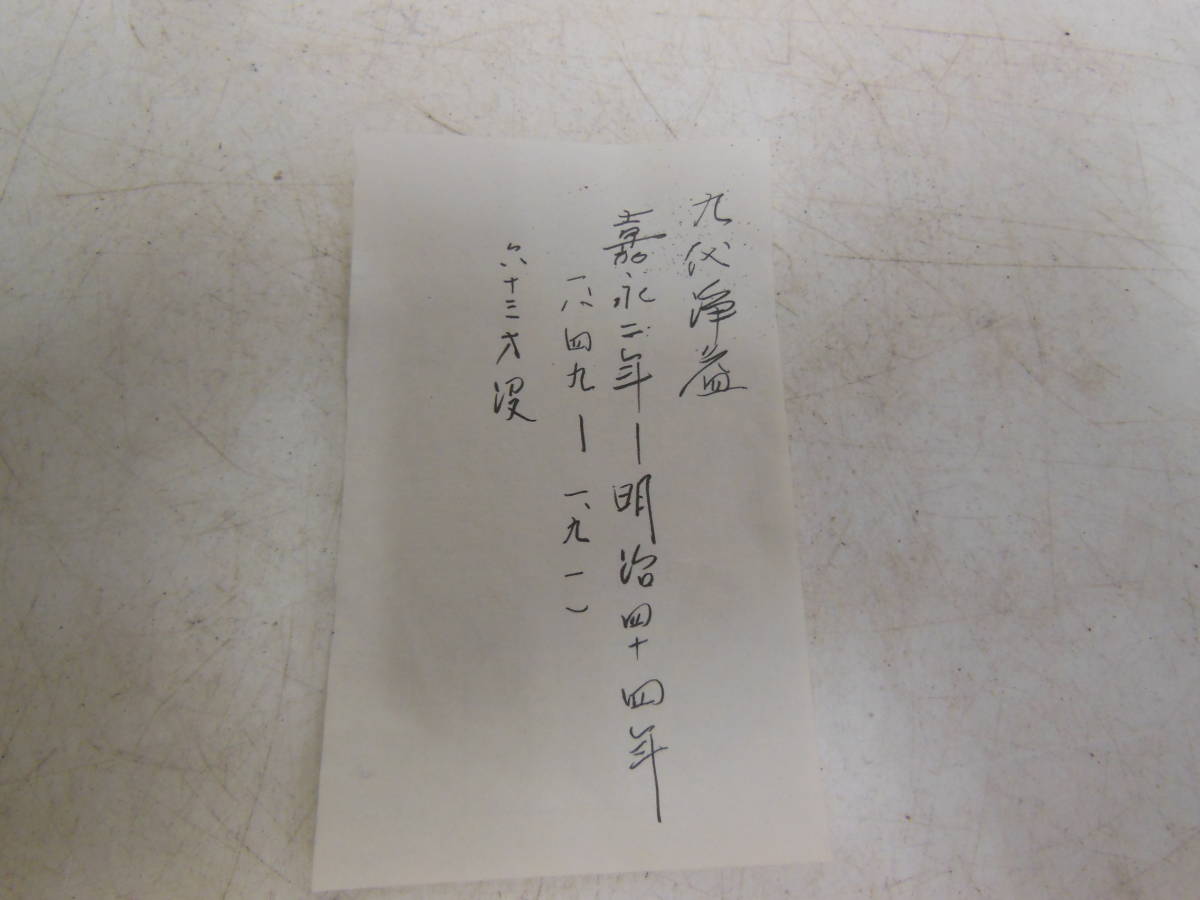 九代浄益
嘉永二年―明治四十四年
一八四九―一九一一)
六十三才没